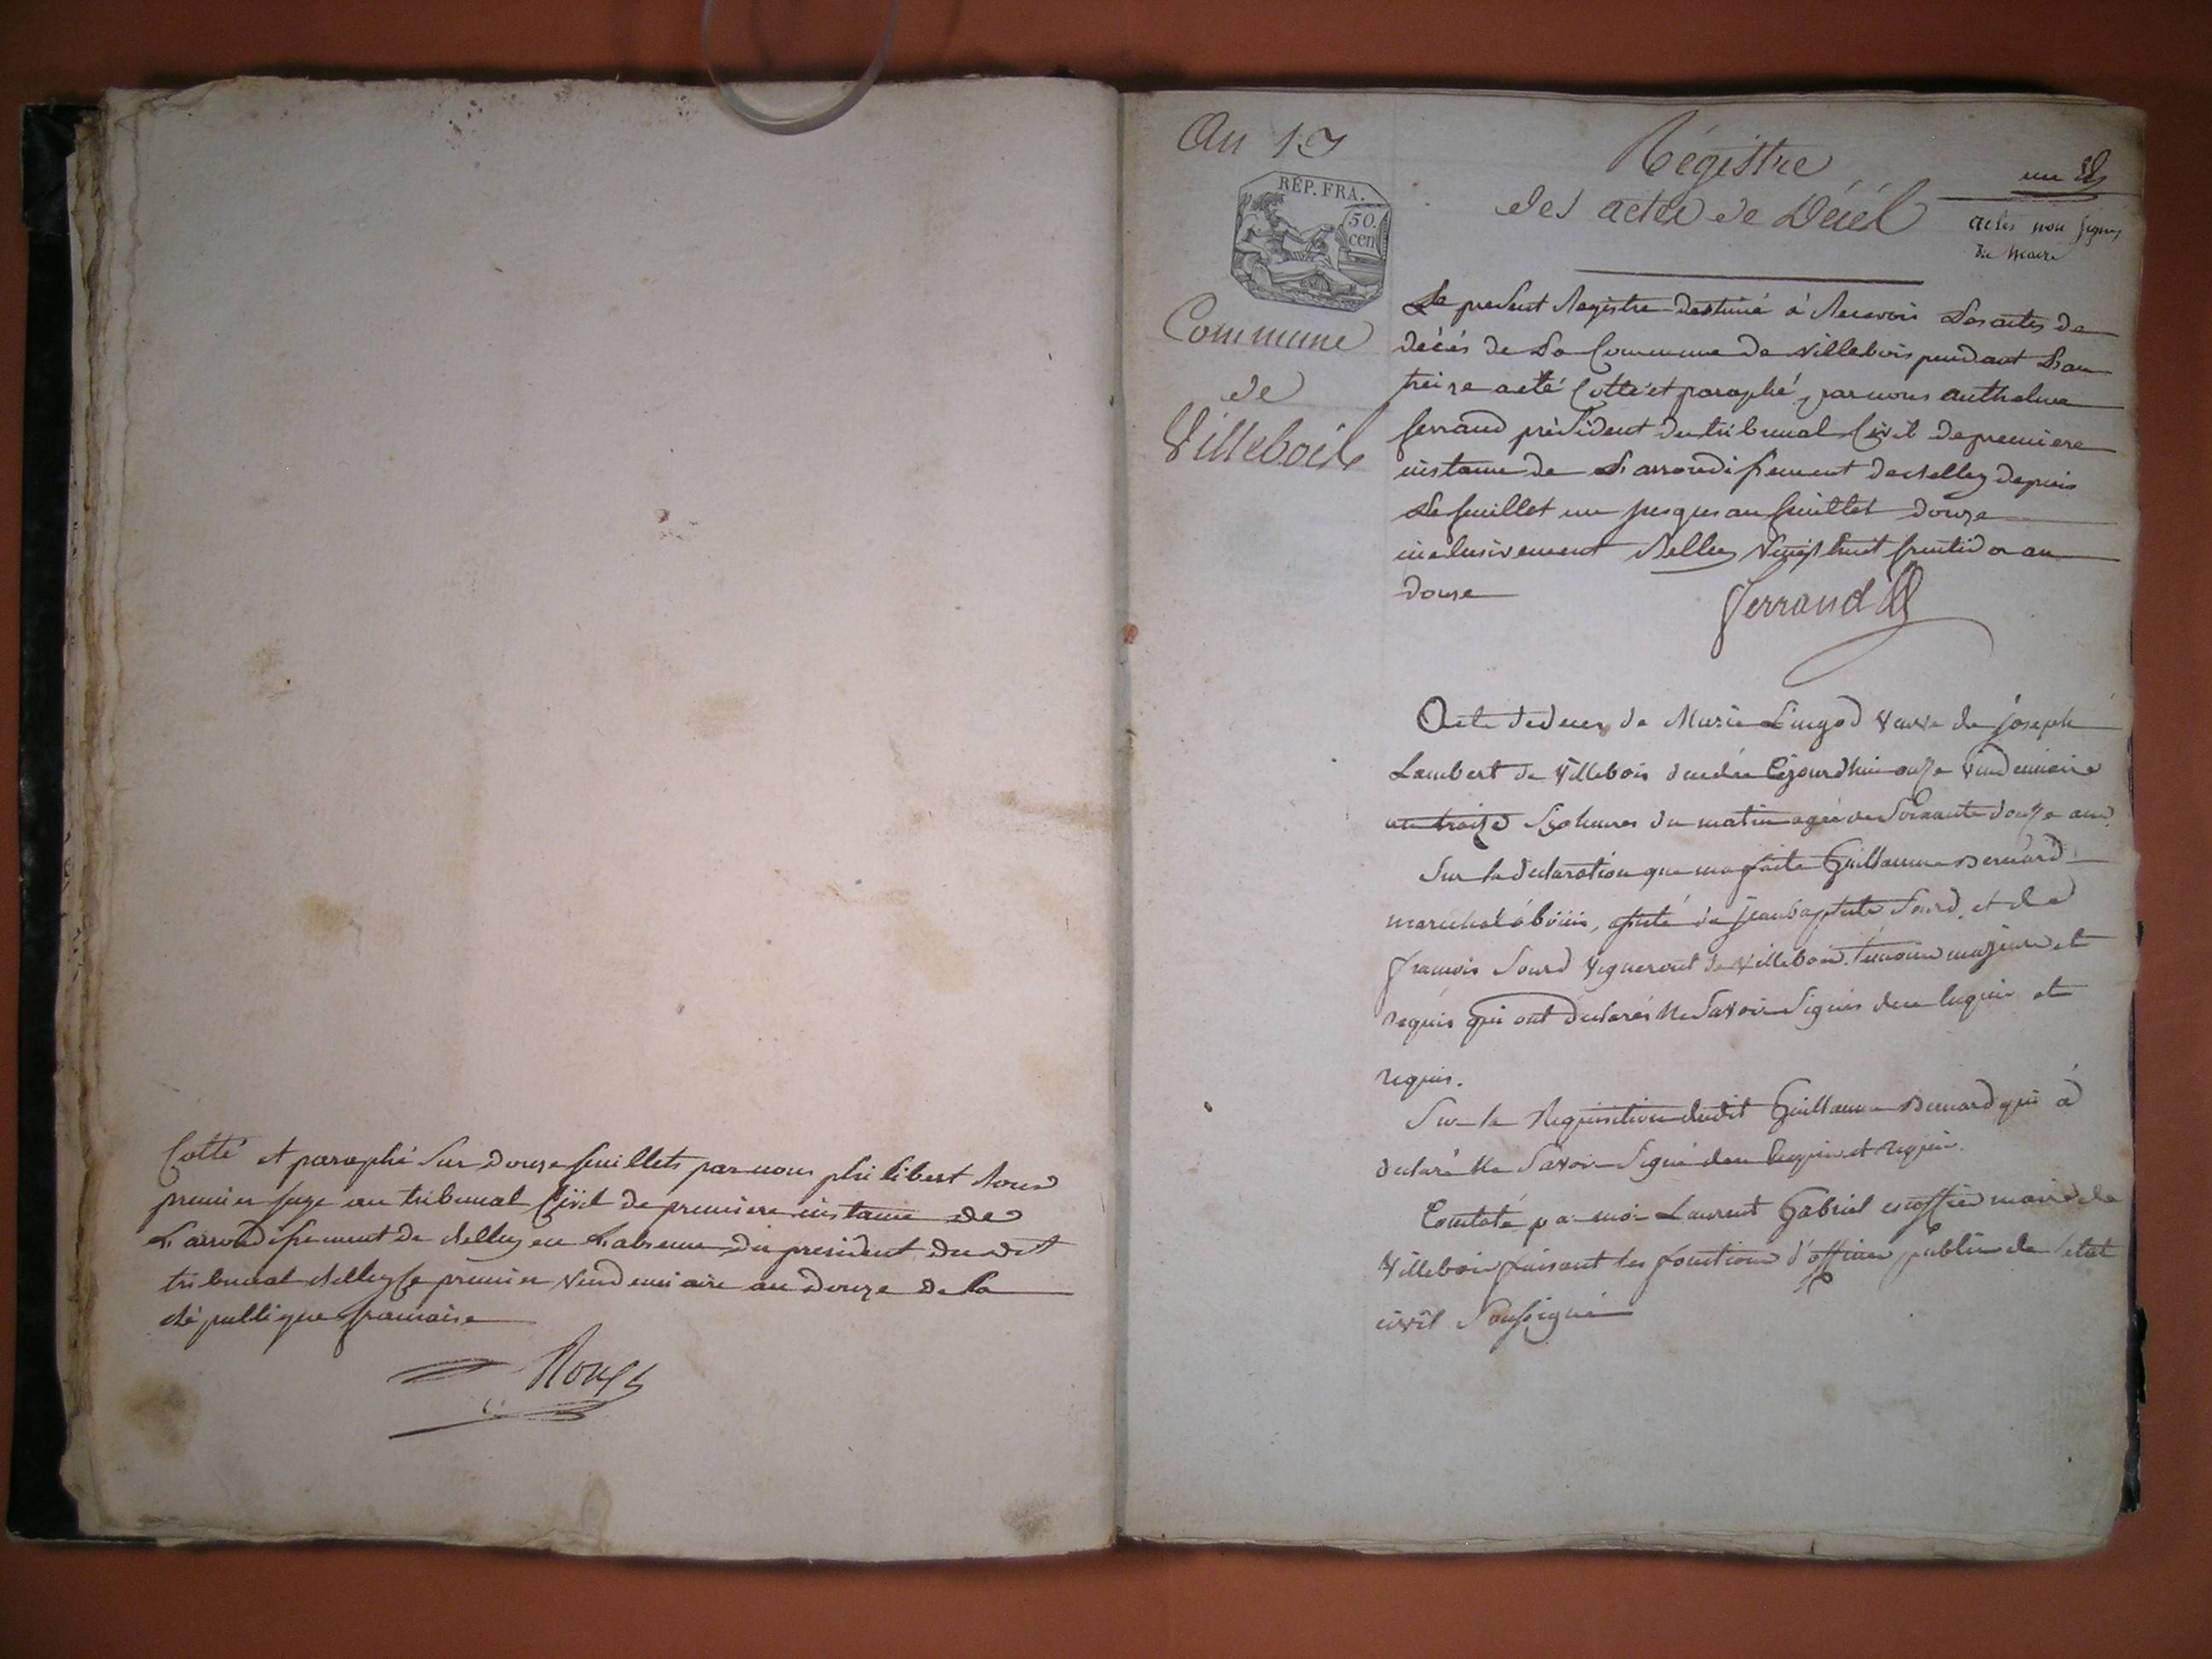 Cotté et paraphé sur douze feuillets par nous philibert Roux
premier juge au tribunal Civil de premiere instance de
L'arrondissement de Belley en L'absence du president du dit
tribunal Belley le premier Vendemiaire an Douze de la
République francaise
An 13
RÉP. FRA.
50.
cen
Commune
de
Villebois
Régistre
des actes de Décés
un
actes non signés
du Maire
Le present Registre destiné à Recevoir Les actes de
décés de La Commune de Villebois pendant L'an
treize a été Cotté et paraphé, par nous anthelme
ferrand président du tribunal Civil de premiere
instance de L'arrondissement de Belley depuis
Le feuillet un jusques au feuillet douze
inclusivement Belley Vingt huit fructidor an
douze
Ferrand
Acte de deces de Marie Veuve de joseph
Lambert de Villebois decedée Cejourdhui onze Vindemiaire
an treize heures du matin agée de Soixante douze ans
Sur la declaration que ma faite Guillaume Bernard
marechal à bouis, assisté de jean baptiste Sourd, et de
françois Sourd Vignerout de Villebois temoins majeurs et
requis qui ont déclarés Ne Savoir Signés de ce enquis et
requis.
Sur la Requisition dudit Guillaume Bernard qui à
declaré Ne Savoir Signé de ce enquis et requis.
Constaté par moi Laurent Gabriel escoffier maire de
Villebois faisant les fonctions d'officier public de letat
civil Soussigné